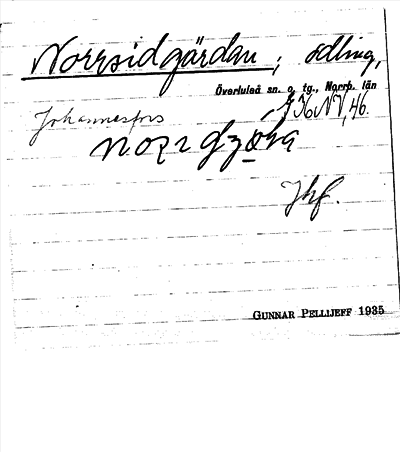 Norrsidgärdan, odling,
Överluleå sn. o. tg., Norrb. län
Johannesfors JKNV, 46.
Jhf.
GUNNAR PELLIJEFF 1935